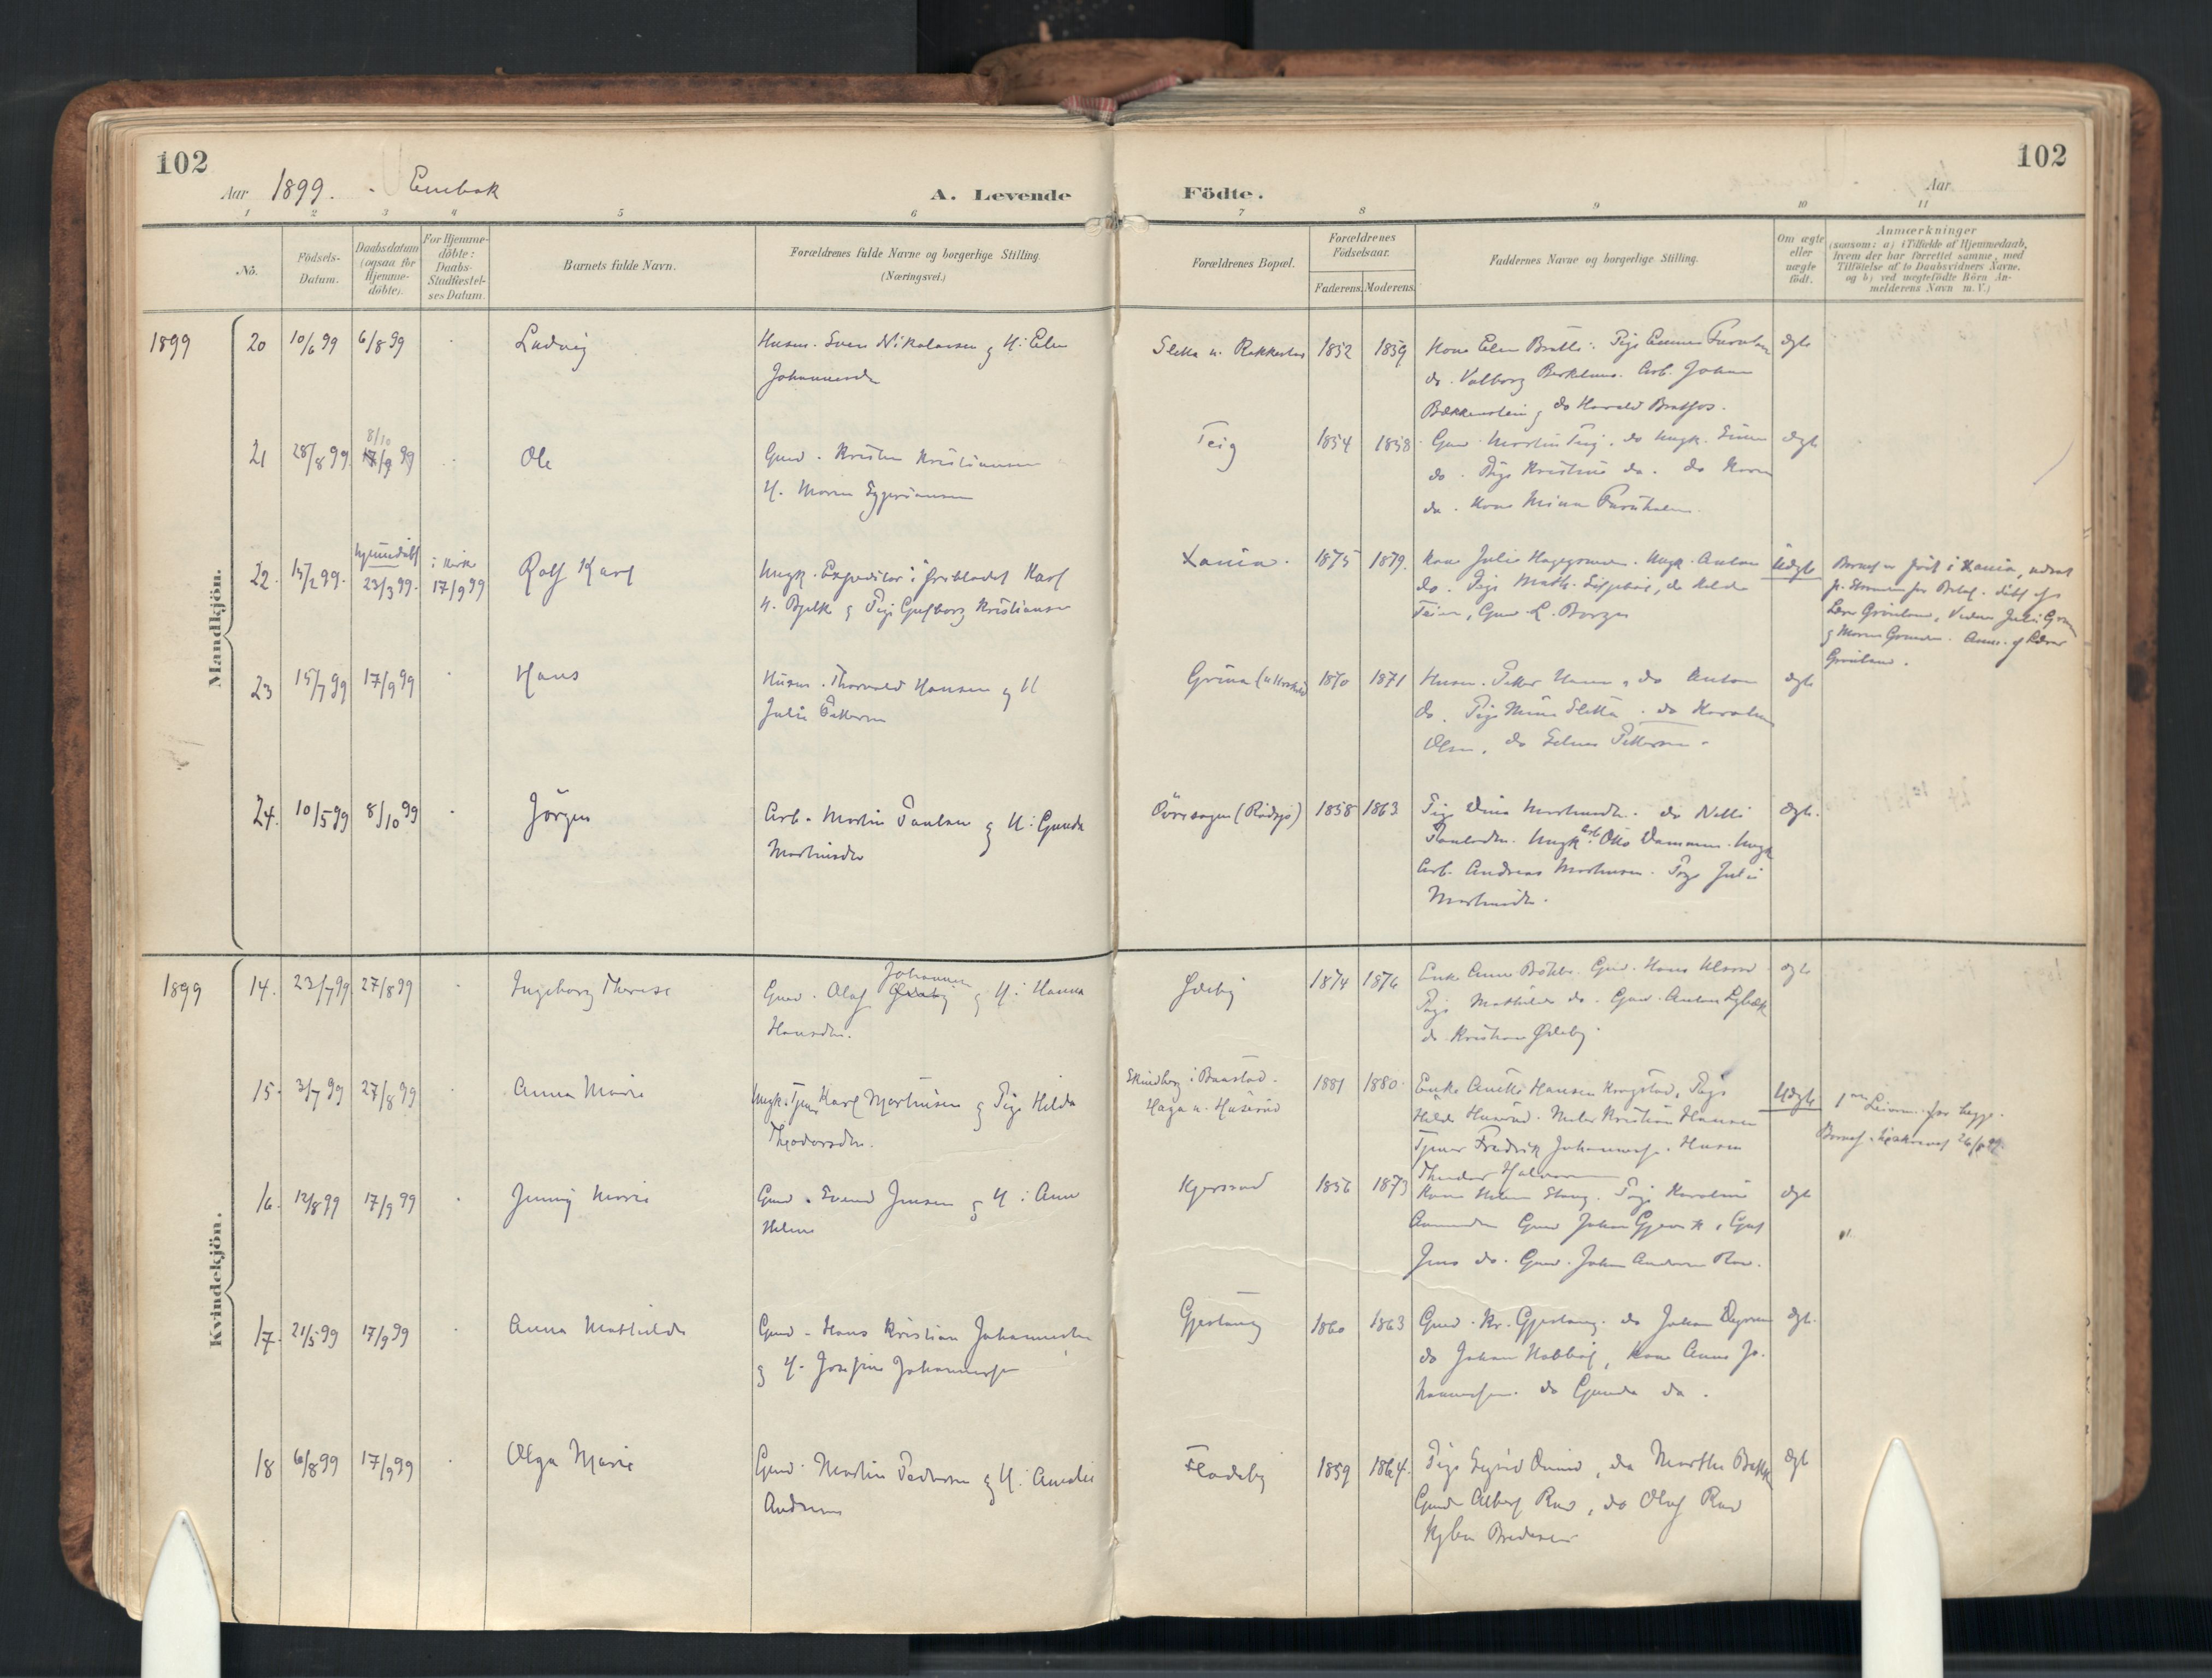 102
Aar 1899. Enebak
A. Levende
Födte.
Aar
102
1 2 3 4 5 6 7 8 9 10 11
No.
Födsels-Datum.
Daabsdatum (ogsaa for Hjemme-döbte).
For Hjemme-döbte: Daabs-Stadfæstel-ses Datum.
Barnets fulde Navn.
Forældrenes fulde Navne og borgerlige Stilling. (Næringsvei.)
Forældrenes Bopæl.
Forældrenes Födselsaar.
Faderens. Moderens.
Faddernes Navne og borgerlige Stilling.
Om ægte eller uægte födt.
Anmærkninger
(saasom: a) i Tilfælde af Hjemmedaab,
hvem der har forrettet samme, med
Tilföielse af to Daabsvidners Navne.
og b) ved uægtefödte Börn An-
melderens Navn m. V.)
Mandkjön.
1899 20 10/6 99 6/8 99 Ludvig
Husm. Sven Nikolaisen og H: Elen
Johannesdr
Sletta u. Rakkestad 1852 1859
Kone Elen Bratli. Pige Emma Furuholm
do. Valborg Berkelund. Arb. Johan
do Harald Bratfos.
ægte
21 28/8 99 8/10 17/9 99 Ole
Gmd. Kristen Kristiansen
H. Maren
Teig 1854 1858
Gmd. Martin Teig, do Ungk. Simen
do. Pige Kristine do. do Karen
do. Kone Mina Furuholm.
ægte
22. 15/2 99. hjemmedøbt 23/3 99. i Kirke 17/9 99 Rolf Karl
Ungk. Expeditør i Ørebladet Karl
H. Bjelk og Pige Gulborg Kristiansen
Xania. 1875 1879.
Kone Julie Hagegrunden. Ungk. Anton
do. Pige Math. do Hilda
Teien, Gmd. L. Borger
Uægte
Barnet er født i Xania, udsat
døbt af
Lærer Grønlund, Vidner Julie Grun
og Maren Grunden. Anm. af Lærer
Grønlund.
23 15/7 99 17/9 99 Hans
Husm. Thorvald Hansen og H
Julie Pettersen
Grina 1870 1871
Husm. Petter do Anton
do. Pige Mina Sletta. do Karoline
Olsen, do Selma Pettersen.
ægte
24. 10/5 99 8/10 99 Jörgen
Arb. Martin Paulsen og H: Gunda
Martinsdr
Övresagen (Rådsjø) 1858 1863
Pige Dina Martinsdtr. do Nelli
Paulsdtr. Ungk. Arb. Otto Dammen. Ungk
Arb. Andreas Martinsen. Pige Julie
Martinsdtr.
ægte.
Kvindekjön.
1899 14. 23/7 99. 27/8 99 Ingeborg Therese
Johannesen
Gmd. Olaf Ødeby og H: Hanna
Hansdtr.
Ødeby 1874 1876
Enke Anne Böhler. Gmd. Hans Ulsrud
Pige Mathilde do. Gmd. Anton Lybæk
do Kristian Ødeby.
ægte
15. 3/7 99 27/8 99 Anna Marie
Ungk. Tjener Karl Martinsen og Pige Hilda
Theodorsdtr.
Skindberg i Baastad.
Haga u. Huserud
1881 1880.
Enke Anette Hansen Krogstad, Pige
Hilda Huserud. Maler Kristian Hansen
Tjener Fredrik Johannesen. Husm
Theodor Halvorsen
Uægte
1ste Leierm. for begge.
16. 12/8 99 17/9 99 Jenny Marie
Gmd. Svend Jensen og H: Anne
Helene
Kjersrud 1856 1873
Kone Helene Stang. Pige Karoline
Gmd Johan Gjerstk, Gmd
Jens do. Gmd. Johan Andersen
ægte
17. 21/5 99 17/9 99 Anna Mathilde
Gmd. Hans Kristian Johannesen
og H. Josefine Johannesen
Gjestang 1860 1863
Gmd. Kr. Gjestang. do Johan
do Johan Kone Anne Jo-
hannesen. do Gunda do.
ægte.
18 6/8 99 17/9 99 Olga Marie
Gmd. Martin Pedersen og H: Amalie
Andersen
Fladeby 1859 1864.
Pige Sigrid do Marthe Bakk
Gmd. Albert Rud, do Olaf Rud
Bredesen
ægte